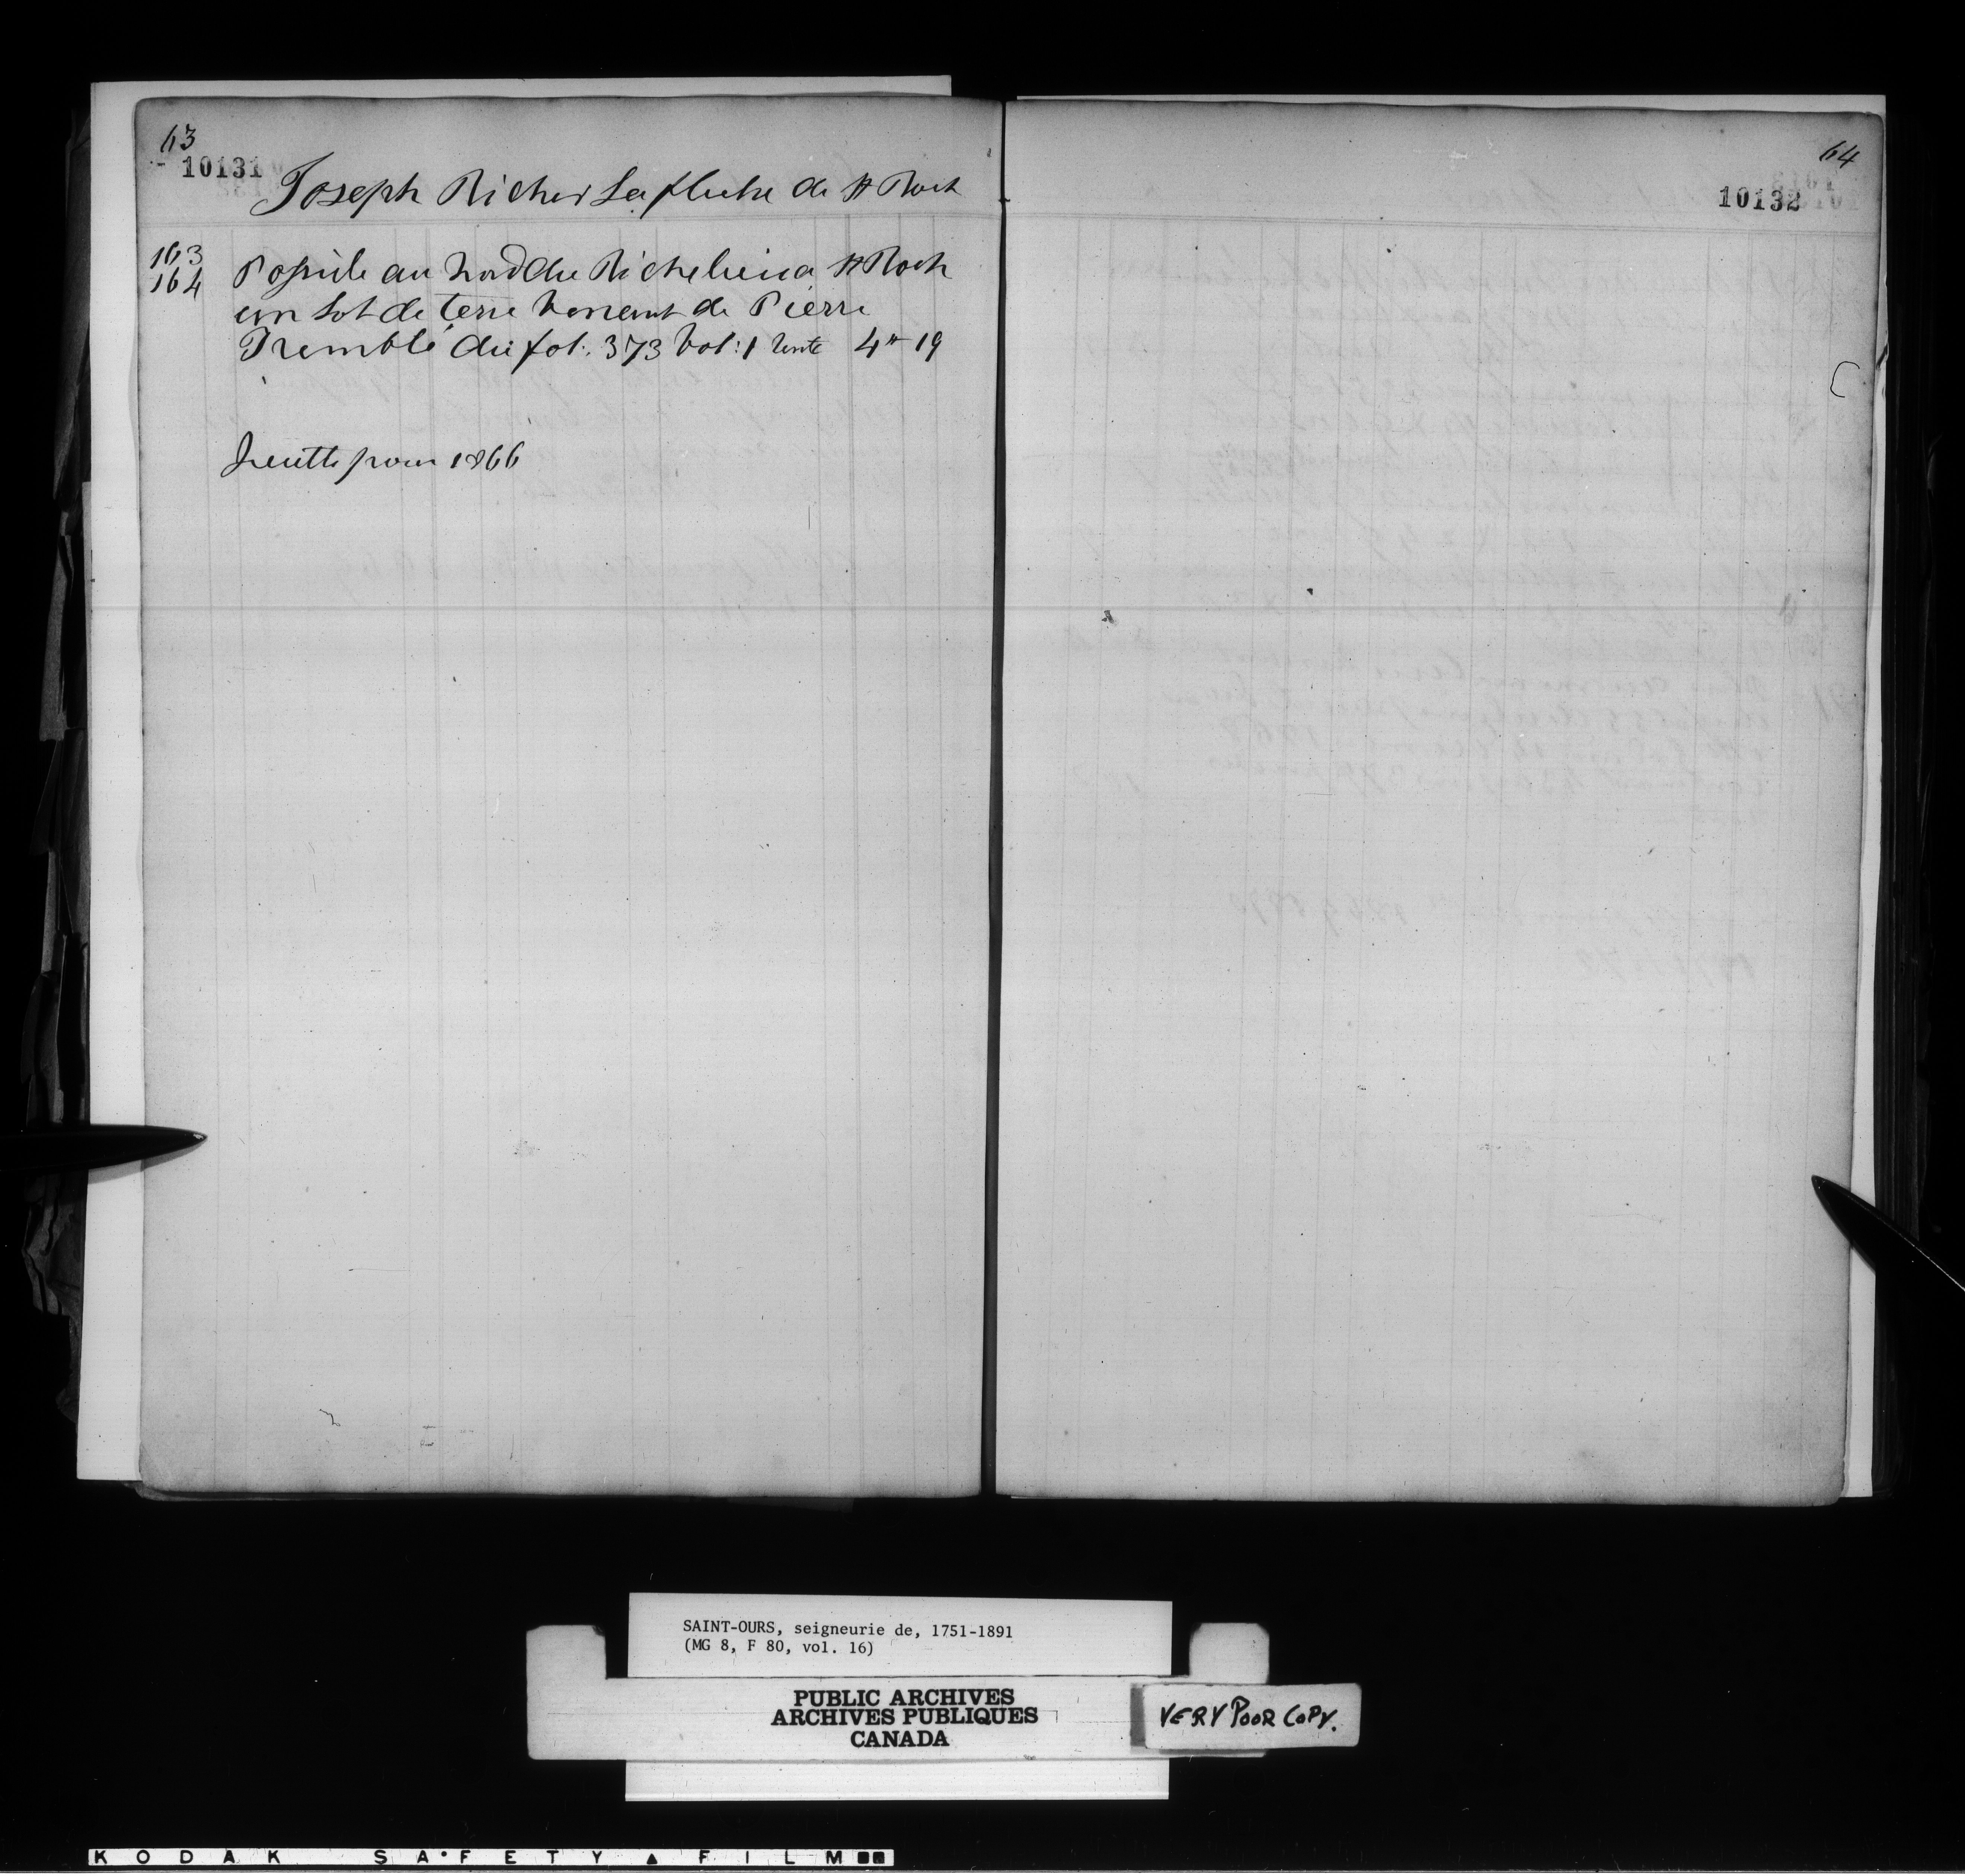 63
10131
Joseph Richer Lafleche de St Roch
163
164
Possède au Nord du Richelieu a St Roch
un Lot de terre Venant de Pierre
Tremblé du fol: 373 Vol: 1 rente 4# 19
quitte pour 1866
64
10132
SAINT-OURS, seigneurie de, 1751-1891
(MG 8, F 80, vol. 16)
PUBLIC ARCHIVES
ARCHIVES PUBLIQUES
CANADA
VERY POOR COPY.
KODAK SAFETY FILM